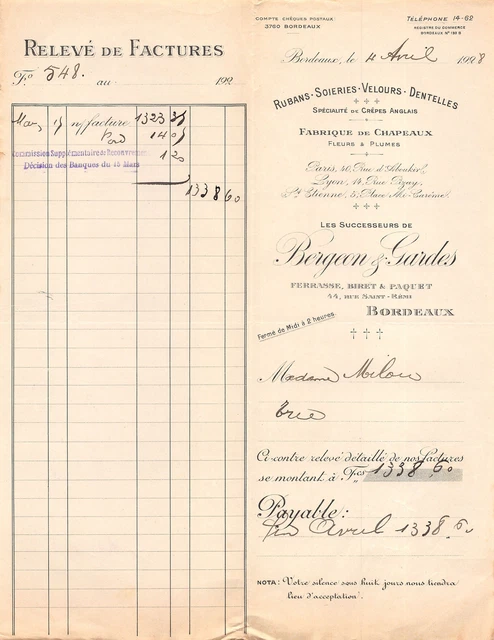 RELEVÉ DE FACTURES
Fo 548. au 192
Mars 15 n/ facture 1323 35
Port 14 05
Commission Supplémentaire de Recouvrement 1 20
Décision des Banques du 15 Mars
1338 60
COMPTE CHÈQUES POSTAUX
3760 BORDEAUX
TÉLÉPHONE 14-62
REGISTRE DU COMMERCE
BORDEAUX
Bordeaux, le 4 Avril 1928
RUBANS-SOIERIES-VELOURS-DENTELLES
SPÉCIALITÉ DE CRÊPES ANGLAIS
FABRIQUE DE CHAPEAUX
FLEURS & PLUMES
Paris, Rue d'Aboukir
Lyon, 14, Rue Pizay
St Etienne, 5, Place Mi-Carême
LES SUCCESSEURS DE
Bergeon & Gardes
FERRASSE, BIRET & PAQUET
44, RUE SAINT-RÉMI
BORDEAUX
Fermé de Midi à 2 heures
Madame Milou
Trie
Ci-contre relevé détaillé de nos factures
se montant à Fcs 1338,60
Payable:
fin Avril 1338.60
NOTA: Votre silence sous huit jours nous tiendra
lieu d'acceptation.